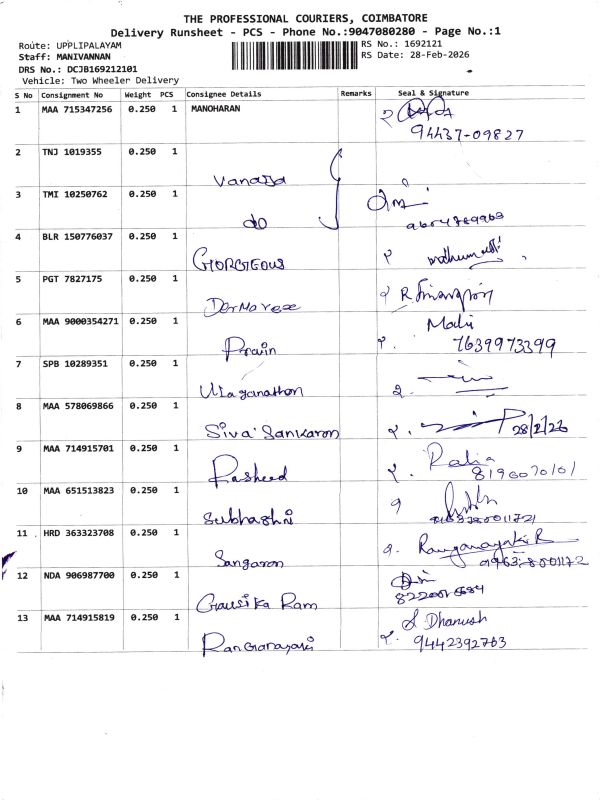 THE PROFESSIONAL COURIERS, COIMBATORE
Delivery Runsheet - PCS - Phone No.:9047080280 - Page No.:1
Route: UPPLIPALAYAM
RS No.: 1692121
Staff: MANIVANNAN
RS Date: 28-Feb-2026
DRS No.: DCJB169212101
Vehicle: Two Wheeler Delivery
S No Consignment No Weight PCS Consignee Details Remarks Seal & Signature
1 MAA 715347256 0.250 1 MANOHARAN
94437-09827
2 TNJ 1019355 0.250 1
Vanaja
3 TMI 10250762 0.250 1
do
4 BLR 150776037 0.250 1
GIORGEOUS
5 PGT 7827175 0.250 1
Dermavese
6 MAA 9000354271 0.250 1 Malli
Pravin 7639973399
7 SPB 10289351 0.250 1
Ulaganathan
8 MAA 578069866 0.250 1
Siva Sankaran 28/2/26
9 MAA 714915701 0.250 1
Rasheed
10 MAA 651513823 0.250 1
Subhashni
11 HRD 363323708 0.250 1 Ranganayaki R
Sangaran
12 NDA 906987700 0.250 1
Gausika Ram
13 MAA 714915819 0.250 1 S Dhanush
Ranganayaki 9442392763